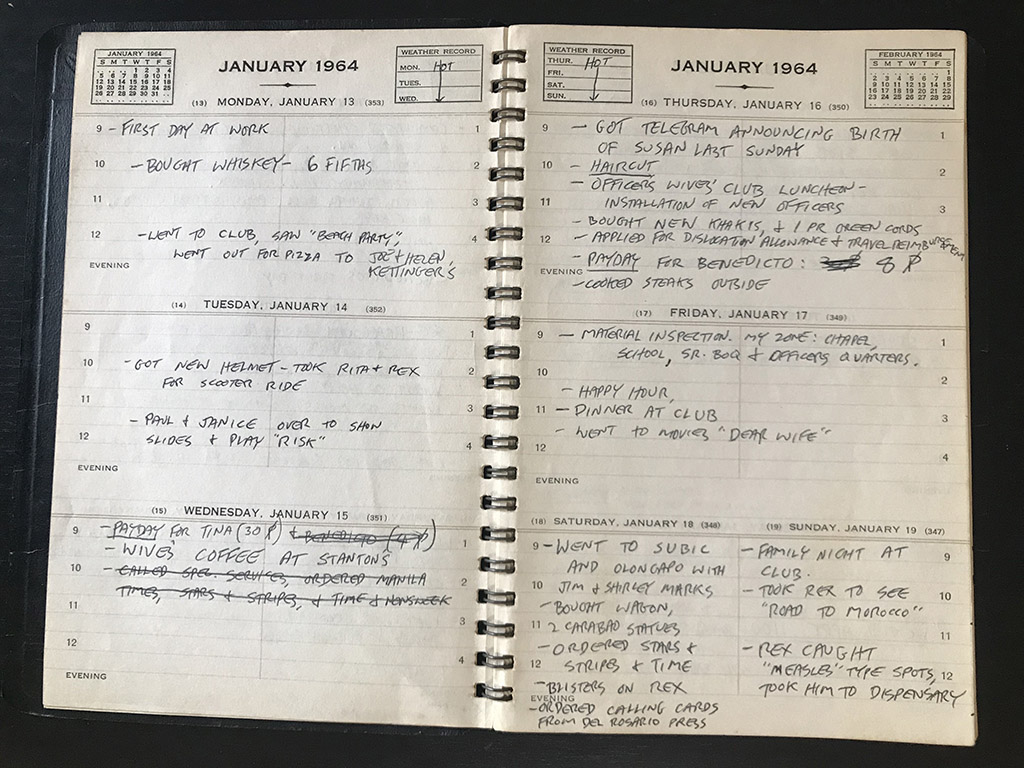 JANUARY 1964
S M T W T F S
1 2 3 4
5 6 7 8 9 10 11
12 13 14 15 16 17 18
19 20 21 22 23 24 25
26 27 28 29 30 31
JANUARY 1964
WEATHER RECORD
MON. HOT
TUES.
WED.
(13) MONDAY, JANUARY 13 (353)
9 - FIRST DAY AT WORK 1
10 - BOUGHT WHISKEY - 6 FIFTHS 2
11 3
12 - WENT TO CLUB, SAW "BEACH PARTY", 4
WENT OUT FOR PIZZA TO JOE & HELEN,
EVENING KETTINGER'S
(14) TUESDAY, JANUARY 14 (352)
9 1
10 - GOT NEW HELMET - TOOK RITA & REX 2
FOR SCOOTER RIDE
11 3
- PAUL & JANICE OVER TO SHOW
12 SLIDES & PLAY "RISK" 4
EVENING
(15) WEDNESDAY, JANUARY 15 (351)
9 - PAYDAY FOR TINA (30 ₱) & BENEDICTO (4 ₱) 1
- WIVES COFFEE AT STANTON'S
10 - CALLED SPEC. SERVICES, ORDERED MANILA 2
TIMES, STARS & STRIPES, & TIME & NEWSWEEK
11 3
12 4
EVENING
WEATHER RECORD
THUR. HOT
FRI.
SAT.
SUN.
JANUARY 1964
FEBRUARY 1964
S M T W T F S
1
2 3 4 5 6 7 8
9 10 11 12 13 14 15
16 17 18 19 20 21 22
23 24 25 26 27 28 29
(16) THURSDAY, JANUARY 16 (350)
9 - GOT TELEGRAM ANNOUNCING BIRTH 1
OF SUSAN LAST SUNDAY
10 - HAIRCUT 2
- OFFICERS WIVES' CLUB LUNCHEON -
11 INSTALLATION OF NEW OFFICERS 3
- BOUGHT NEW KHAKIS, & 1 PR GREEN CORDS
12 - APPLIED FOR DISLOCATION ALLOWANCE & TRAVEL REIMBURSEMENT
- PAYDAY FOR BENEDICTO: 8 ₱
EVENING - COOKED STEAKS OUTSIDE
(17) FRIDAY, JANUARY 17 (349)
9 - MATERIAL INSPECTION. MY ZONE: CHAPEL, 1
SCHOOL, SR. BOQ & OFFICERS QUARTERS.
10 2
- HAPPY HOUR,
11 - DINNER AT CLUB 3
- WENT TO MOVIES "DEAR WIFE"
12 4
EVENING
(18) SATURDAY, JANUARY 18 (348)
9 - WENT TO SUBIC
AND OLONGAPO WITH
10 JIM & SHIRLEY MARKS
- BOUGHT WAGON,
11 2 CARABAO STATUES
- ORDERED STARS &
12 STRIPES & TIME
- BLISTERS ON REX
EVENING
- ORDERED CALLING CARDS
FROM DEL ROSARIO PRESS
(19) SUNDAY, JANUARY 19 (347)
- FAMILY NIGHT AT 9
CLUB.
- TOOK REX TO SEE 10
"ROAD TO MOROCCO"
11
- REX CAUGHT
"MEASLES" TYPE SPOTS, 12
TOOK HIM TO DISPENSARY